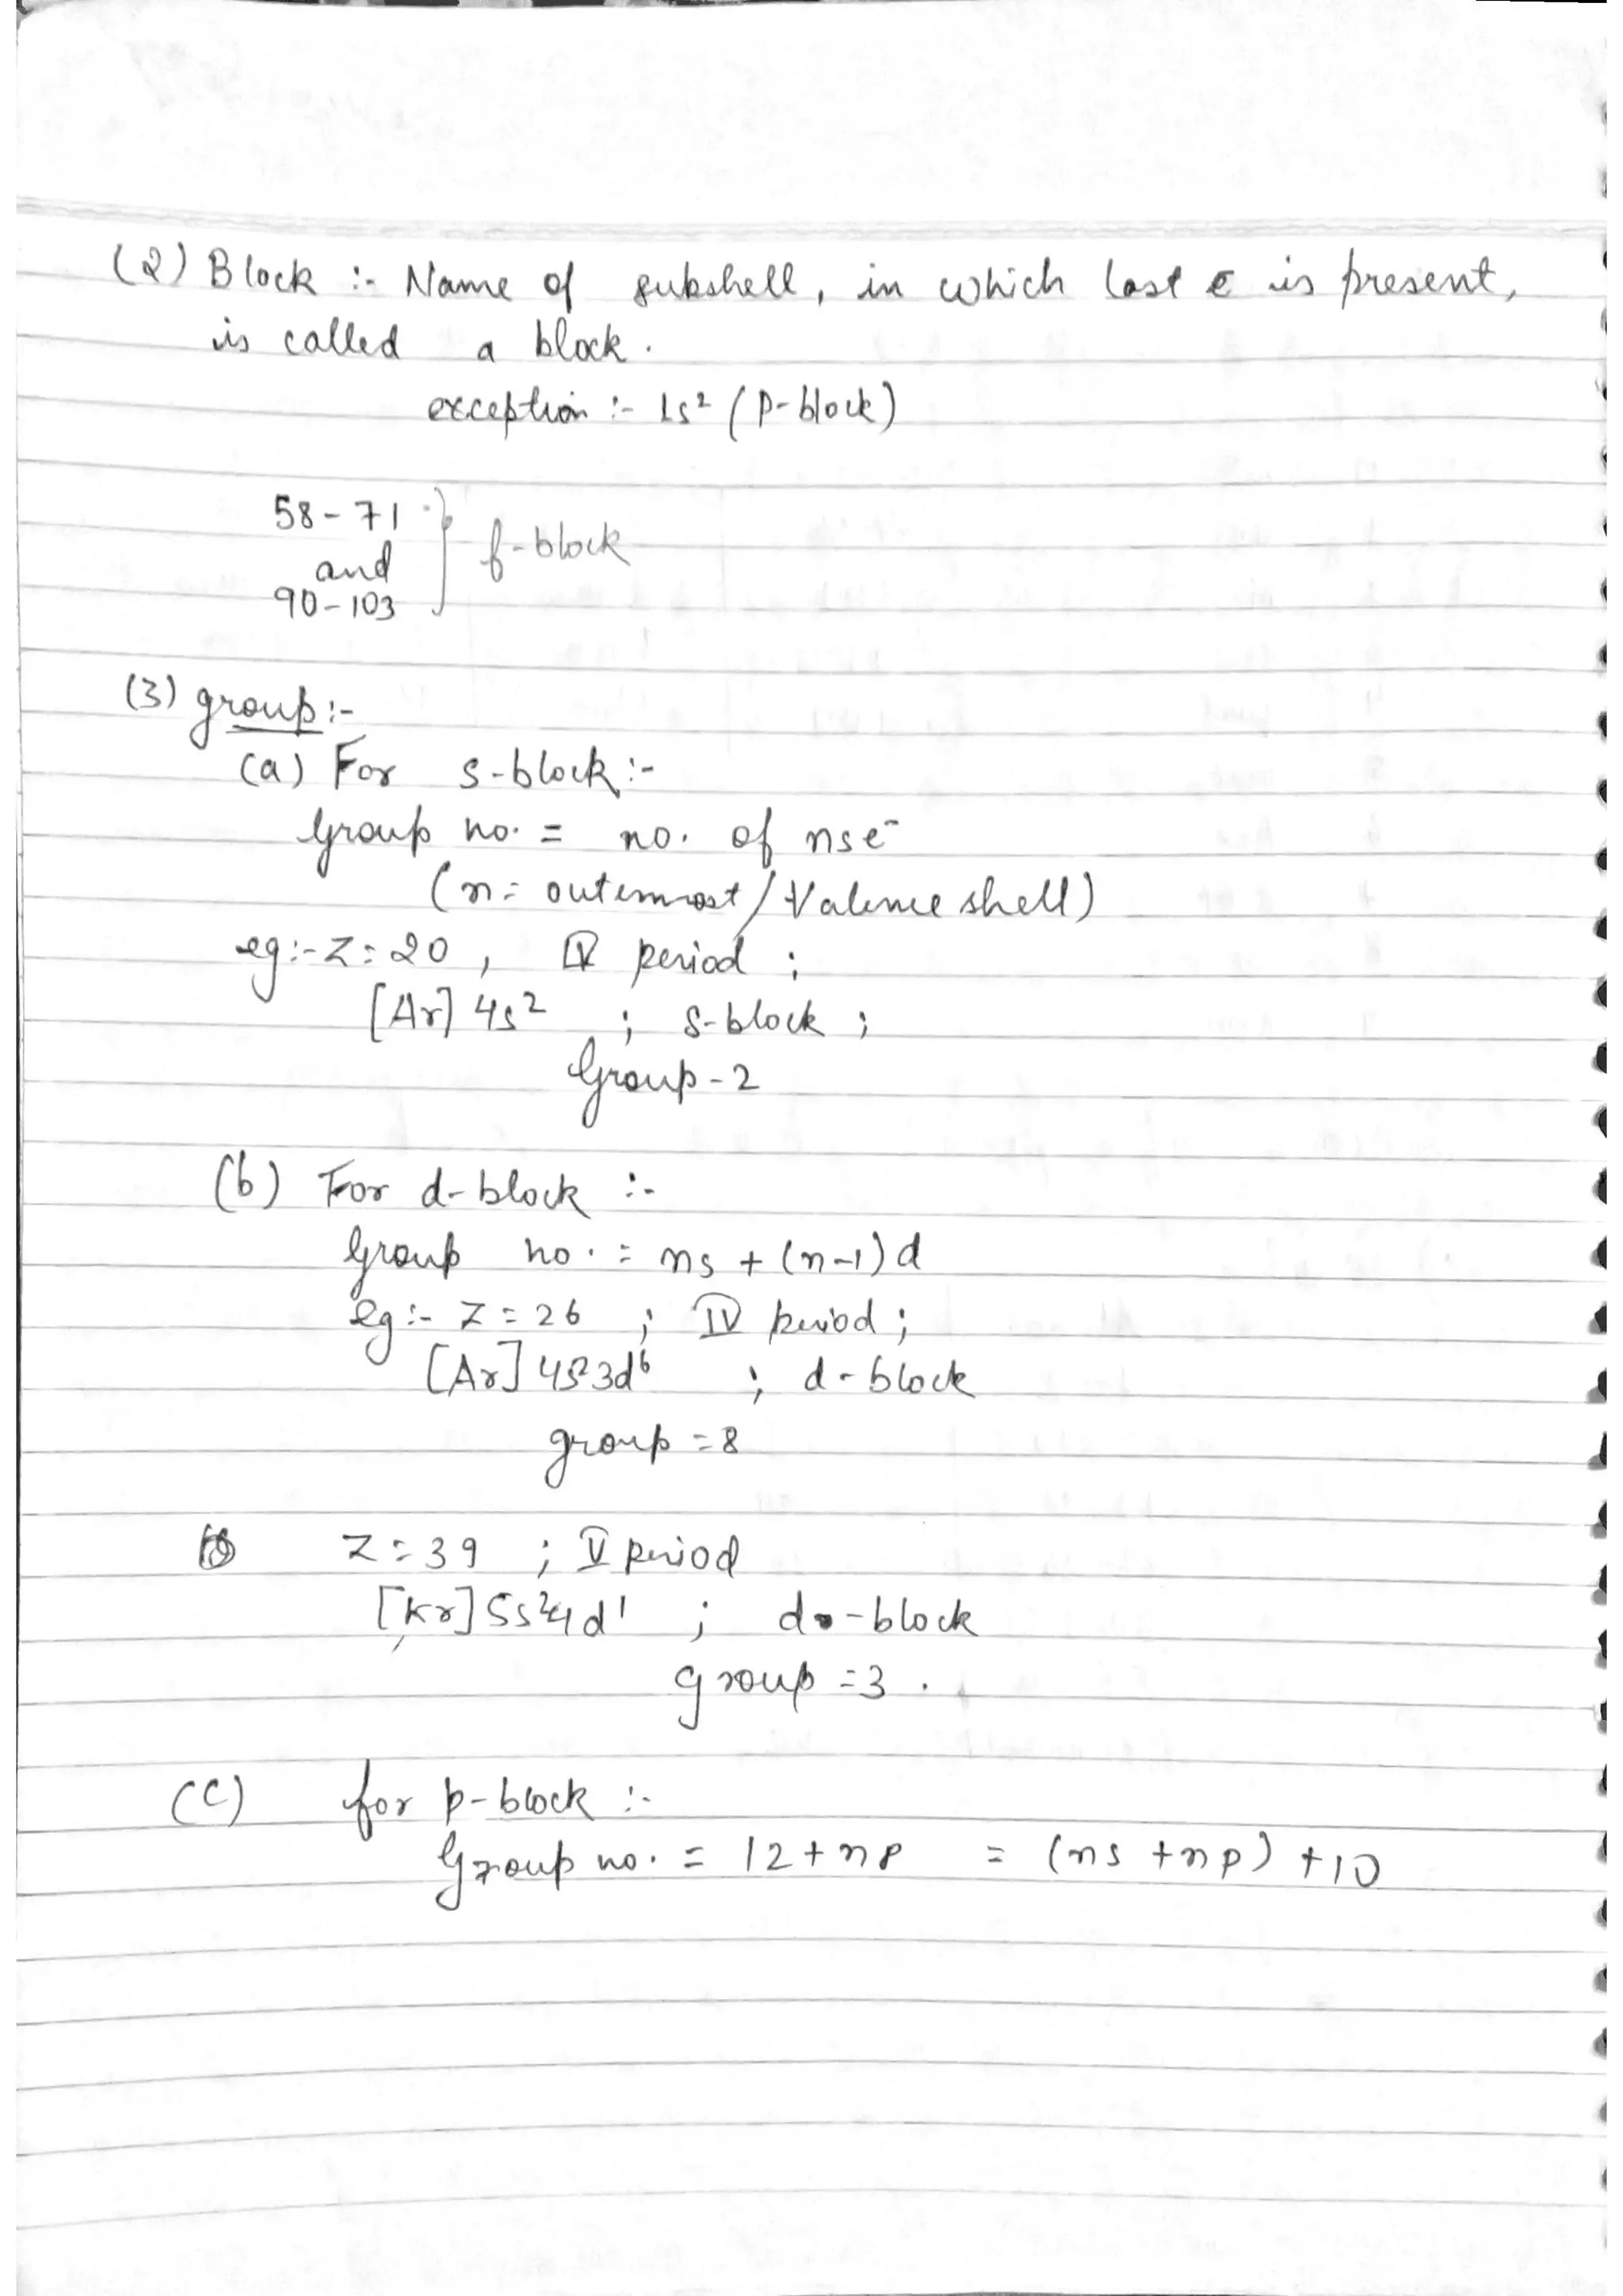 (2) Block :- Name of subshell, in which last e is present,
is called a block.
exception :- 1s² (P-block)
58-71
and
90-103
} f-block
(3) group:-
(a) For s-block:-
Group no. = no. of ns e⁻
(n = outermost/Valence shell)
eg:- Z = 20 , IV period ;
[Ar] 4s² ; s-block ;
Group-2
(b) For d-block :-
Group no. = ns + (n-1)d
eg:- Z = 26 ; IV period ;
[Ar] 4s²3d⁶ ; d-block
group = 8
Z = 39 ; V period
[Kr] 5s²4d¹ ; d-block
group = 3 .
(C) for p-block :-
Group no. = 12 + np = (ns + np) + 10